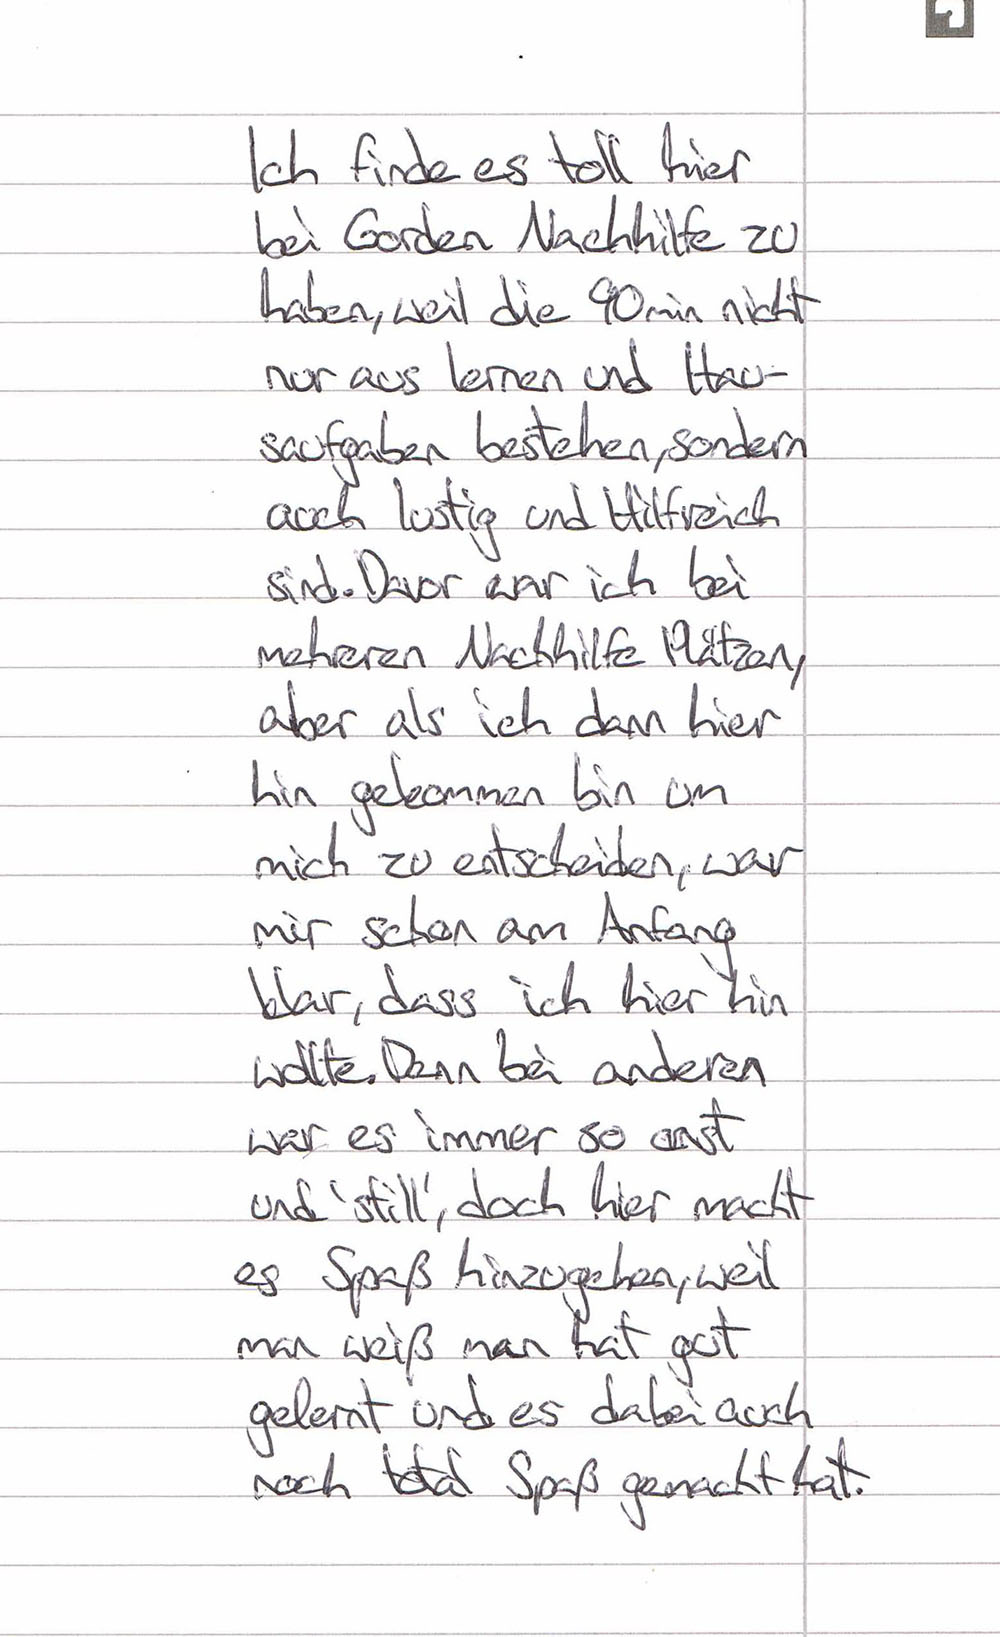 Ich finde es toll hier
bei Gorden Nachhilfe zu
haben, weil die 90min nicht
nur aus lernen und Hau-
saufgaben bestehen, sondern
auch lustig und Hilfreich
sind. Davor war ich bei
mehreren Nachhilfe Plätzen,
aber als ich dann hier
hin gekommen bin um
mich zu entscheiden, war
mir schon am Anfang
klar, dass ich hier hin
wollte. Denn bei anderen
war es immer so
und 'still', doch hier macht
es Spaß hinzugehen, weil
man weiß man hat gut
gelernt und es dabei auch
noch total Spaß gemacht hat.